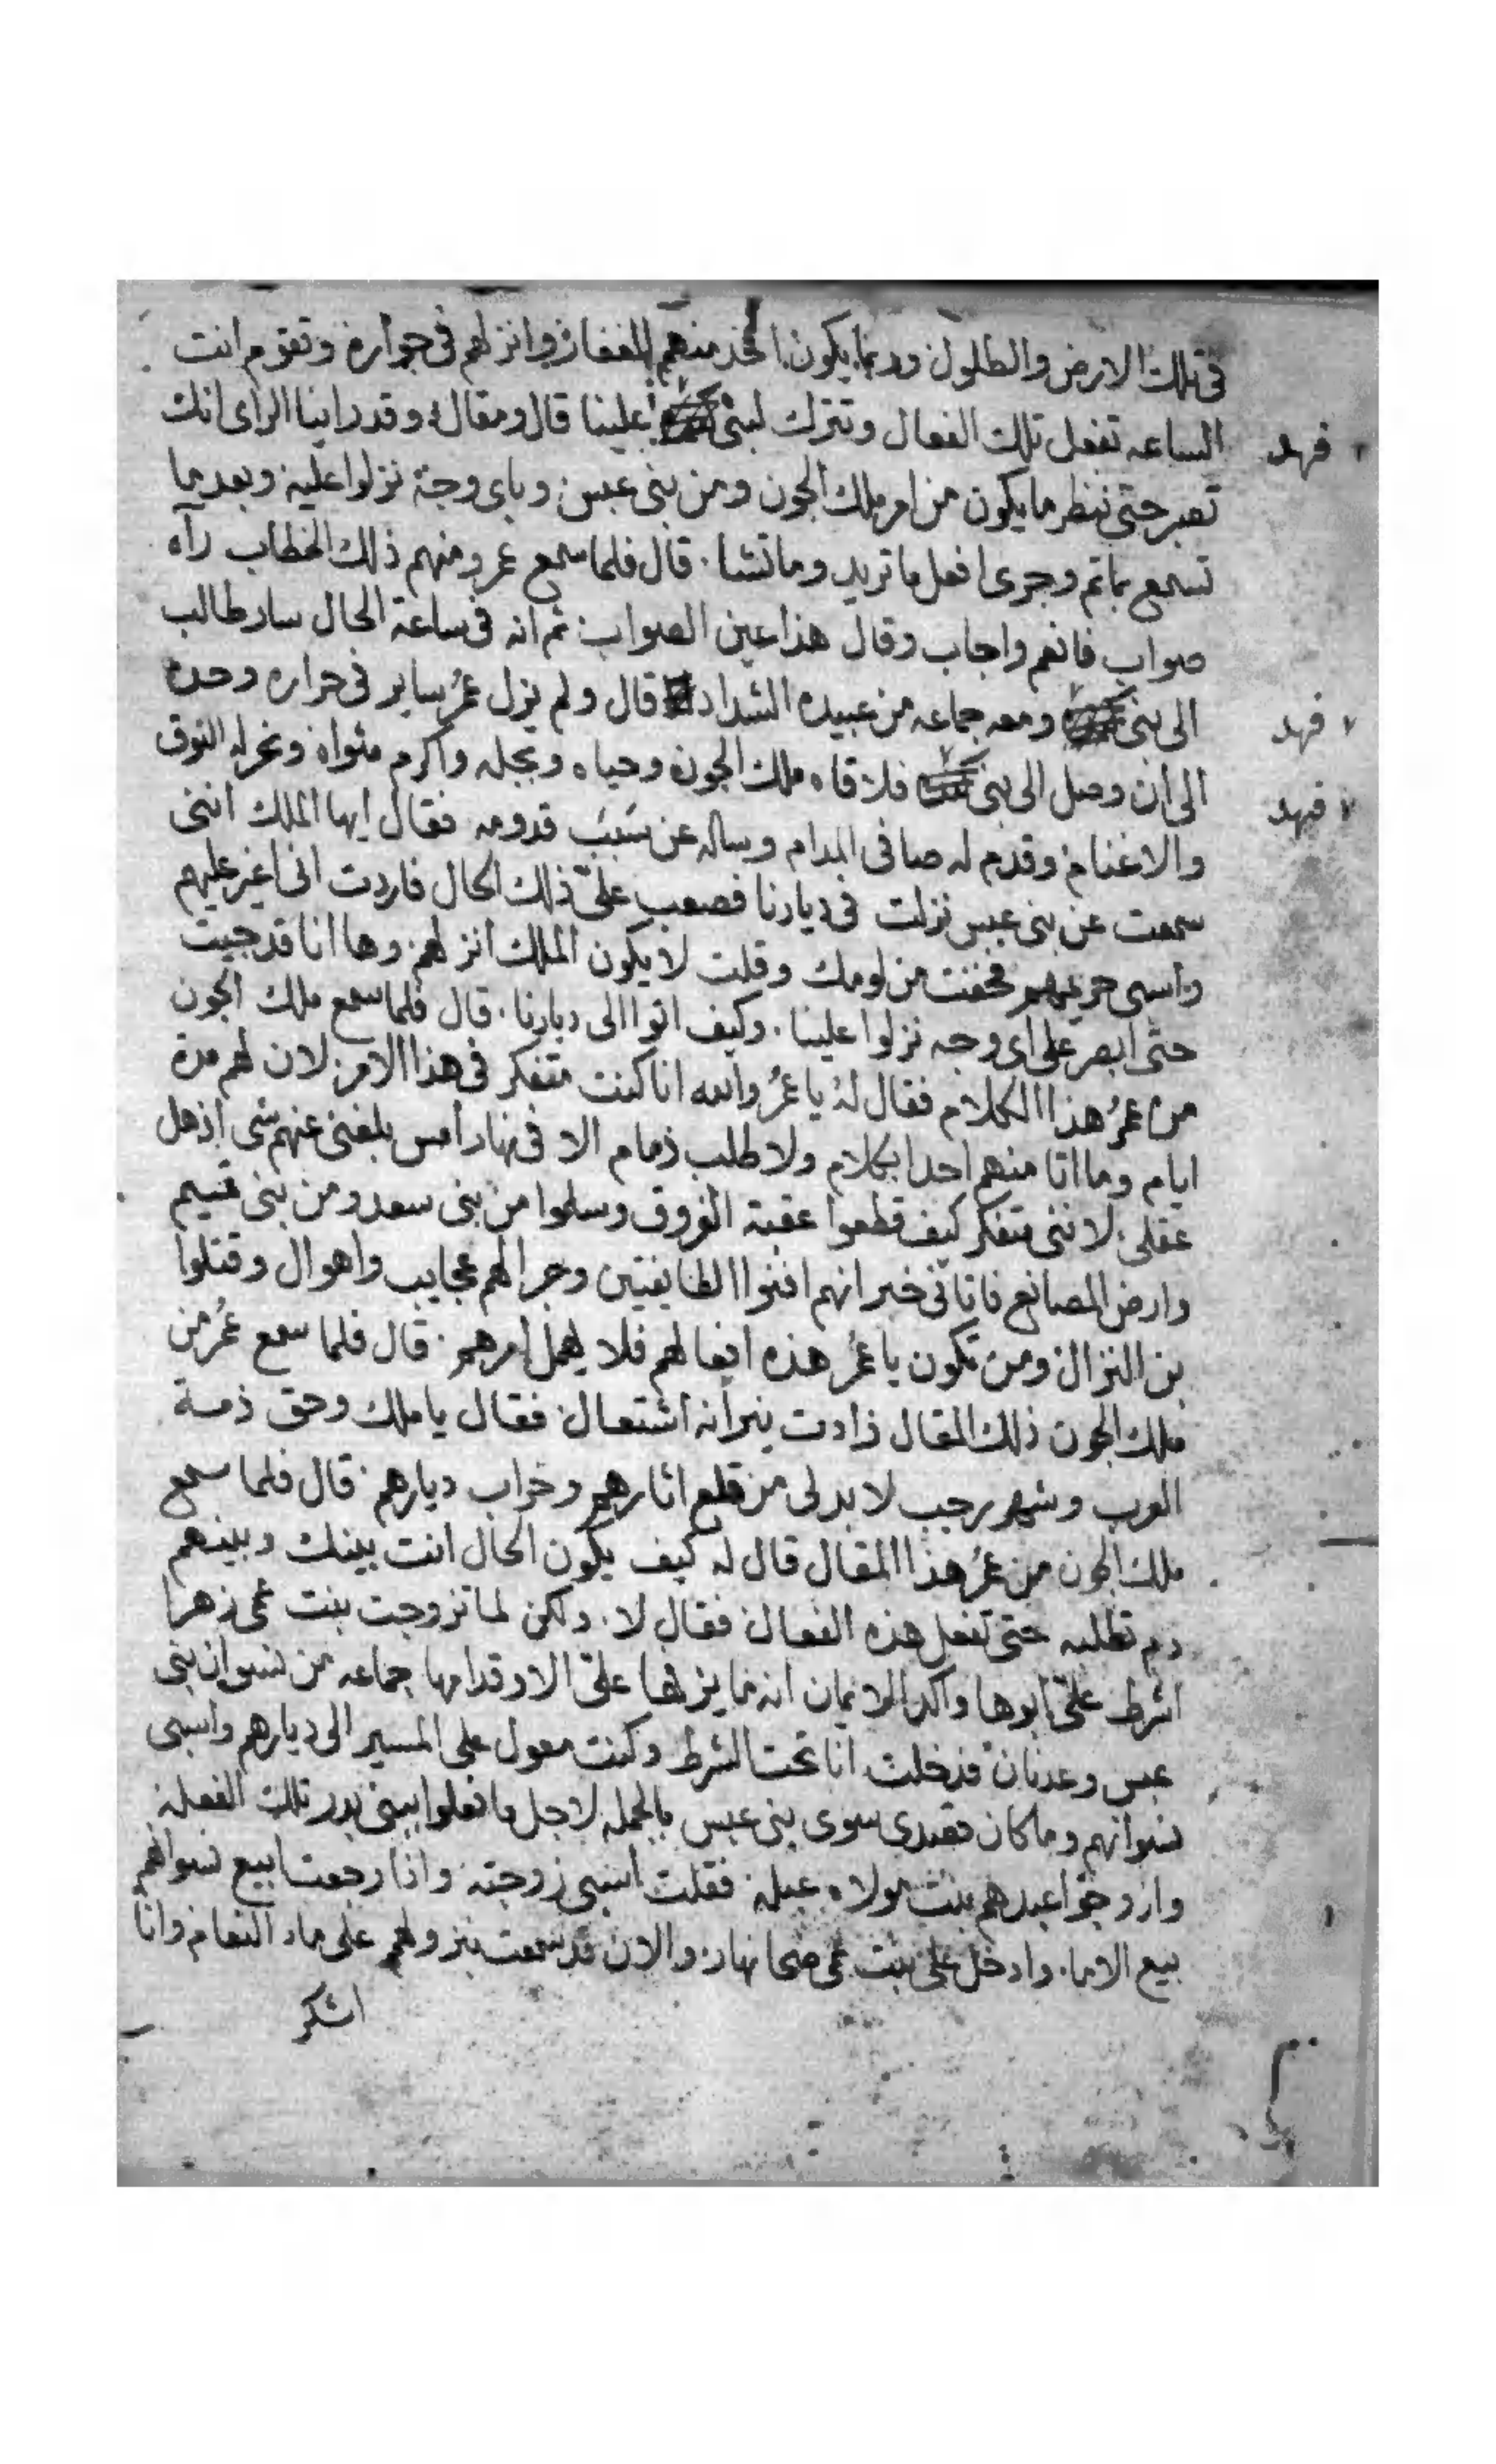 في تلك الارض والطلول وربما يكون اخذ منهم الغفاره وانزلهم في جواره وتقوم انت
الساعه تفعل تلك الفعال وتترك لبني علينا قال ومقال وقد راينا الراى انك
فهد
تصبر حتى ننظر ما يكون من امر ملك الجون ومن بني عبس وباى وجه نزلوا عليه وبعدما
تسمع بماتم وجرى افعل ما تريد وما تشا . قال فلما سمع عمرو منهم ذلك الخطاب رآه
صواب فانعم واجاب وقال هذا عين الصواب ثم انه في ساعة الحال سار طالب
الى بني ومعه جماعه من عبيده الشداد قال ولم يزل عمرُ ساير في حراره وحده
فهد
الى ان وصل الى بني فلاقاه ملك الجون وحياه وبجله واكرم مثواه ونحر له النوق
فهد
والاغنام وقدم له صافى المدام وساله عن سَبَبَ قدومه فقال ايها الملك انني
سمعت عن بني عبس نزلت في ديارنا فصعب علىّ ذلك الحال فاردت اني اغير عليهم
واسبى حريمهم فخفت من لومك وقلت لا يكون الملك انزلهم وها انا قد جيت
حتى ابصر على اى وجه نزلوا علينا . وكيف اتوا الى ديارنا . قال فلما سمع ملك الجون
من عمرُ هذا الكلام فقال لهُ يا عمرُ والله انا كنت متفكر في هذا الامر لان لهم مدة
ايام وما اتا منهم احدا بكلام ولا طلب ذمام الا في نهار امس بلغني عنهم شى اذهل
عقلى لانني متفكر كيف قطعوا عقبة الفروق وسلموا من بني سعد ومن بني تميم
وارض المصانع فاتاني خبر انهم افنوا الطايفتين وجرا لهم عجايب واهوال وقتلوا
بن النزال ومن تكون يا عمرُ هذه افعالهم فلا يهمل امرهم . قال فلما سمع عمرُ من
ملك الجون ذلك المقال زادت نيرانه اشتعال فقال يا ملك وحق ذمة
العرب وشهر رجب لا بد لى من قلع اثارهم وخراب ديارهم قال فلما سمع
ملك الجون من عمرُ هذا المقال قال له كيف يكون الحال انت بينك وبينهم
دم تطلبه حتى تفعل هذه الفعال فقال لا . ولكن لما تزوجت بنت عمى زهرا
اشرط علىّ ابوها واكد الايمان انه ما يزفها علىّ الا وقدامها جماعه من نسوان بني
عبس وعدنان فدخلت انا تحت الشرط وكنت معول على المسير الى ديارهم واسبى
نسوانهم وما كان قصدى سوى بني عبس بالجمله لاجل ما فعلوا ببني بدر تلك الفعله
وازوجوا عبدهم بنت مولاه عبله فقلت اسبى زوجته واذا رجعت ابيع نسوانهم
بيع الاما. وادخل على بنت عمى ضحا نهار والان قد سمعت بنزولهم على ماء النعام وانا
اشكر